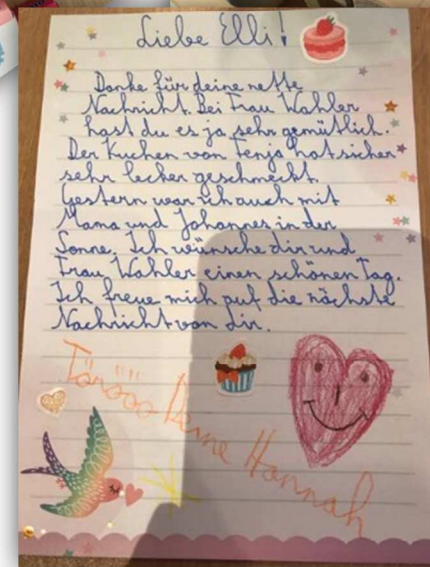 Liebe Elli!
Danke für deine nette
Nachricht. Bei Frau Wahler
hast du es ja sehr gemütlich.
Der Kuchen von Fenja hat sicher
sehr lecker geschmeckt.
Gestern war ich auch mit
Mama und Johannes in der
Sonne. Ich wünsche dir und
Frau Wahler einen schönen Tag.
Ich freue mich auf die nächste
Nachricht von dir.
Töröö Deine Hannah